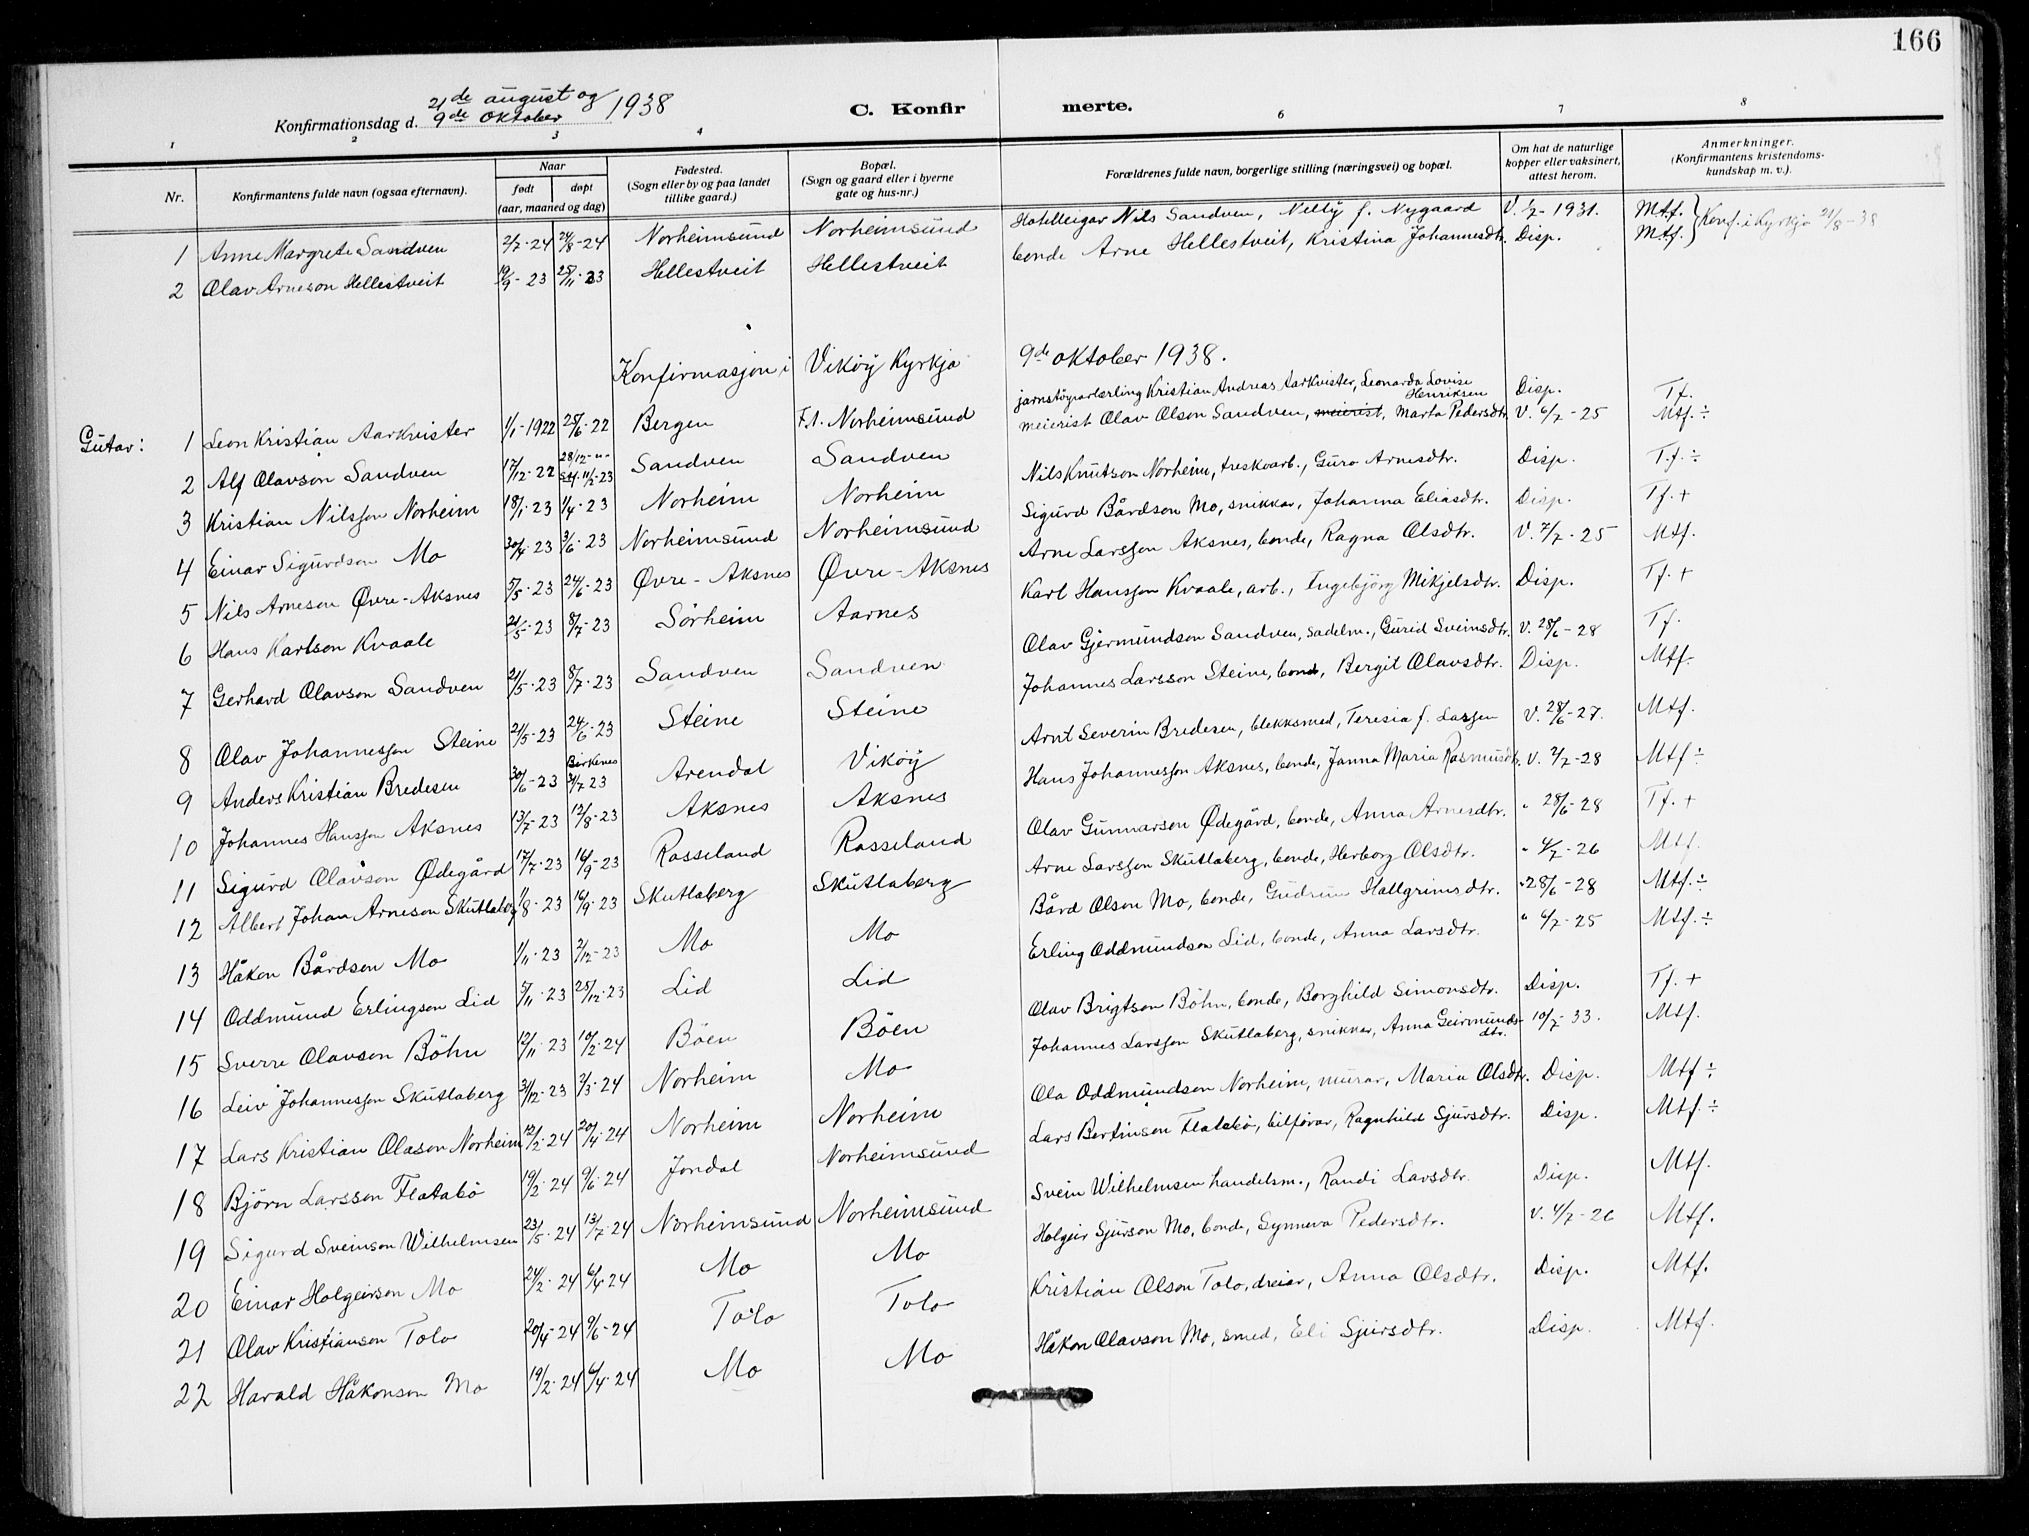 166
Konfirmationsdag d. 21de august og 9de oktober 1938
C. Konfirmerte.
1 2 3 4 6 7 8
Nr. Konfirmantens fulde navn (ogsaa efternavn). Naar født døpt (aar, maaned og dag) Fødested. (Sogn eller by og paa landet tillike gaard.) Bopæl. (Sogn og gaard eller i byerne gate og hus-nr.) Forældrenes fulde navn, borgerlige stilling (næringsvei) og bopæl. Om hat de naturlige kopper eller vaksinert, attest herom. Anmerkninger. (Konfirmantens kristendoms-kundskap m. v.).
1 Anne Margrete Sandven 2/7-24 24/8-24 Norheimsund Norheimsund Hotelleigar Nils Sandven, Nelly f. Nygaard V. 1/7-1931. Mtf.
2 Olav Arneson Hellestveit 19/9-23 25/11-23 Hellestveit Hellestveit bonde Arne Hellestveit, Kristina Johannesdtr. Disp. Mtf.
Konf. i Kyrkja 21/8-38
Konfirmasjon i Vikøy Kyrkja 9de oktober 1938.
Gutar: 1 Leon Kristian Aarkvister 1/1-1922 25/6-22 Bergen F.t. Norheimsund jarnstøyparlærling Kristian Andreas Aarkvister, Leonarda Lovise Henriksen Disp. Tf.
2 Alf Olavson Sandven 17/12-22 28/12-"- 11/2-23 Sandven Sandven meierist Olav Olson Sandven, meierist, Marta Pedersdtr. V. 6/7-25 Mtf. ÷
3 Kristian Nilsson Norheim 18/1-23 1/4-23 Norheim Norheim Nils Knutson Norheim, treskoarb., Guro Arnesdtr. Disp. Tf. ÷
4 Einar Sigurdson Mo 30/4-23 3/6-23 Norheimsund Norheimsund Sigurd Bårdson Mo, snikkar, Johanna Eliasdtr. Disp. Tf. +
5 Nils Arneson Øvre-Aksnes 5/5-23 24/6-23 Øvre-Aksnes Øvre-Aksnes Arne Larsson Aksnes, bonde, Ragna Olsdtr. V. 7/7-25 Mtf.
6 Hans Karlson Kvaale 21/5-23 8/7-23 Sørheim Aarnes Karl Hansson Kvaale, arb., Ingebjørg Mikjelsdtr. Disp. Tf. +
7 Gerhard Olavson Sandven 21/5-23 8/7-23 Sandven Sandven Olav Gjermundson Sandven, sadelm., Gurid Sveinsdtr. V. 28/6-28 Tf.
8 Olav Johannesson Steine 21/5-23 24/6-23 Steine Steine Johannes Larsson Steine, bonde, Bergit Olavsdtr. Disp. Mtf.
9 Anders Kristian Bredesen 30/6-23 Birkenes 31/7 23 Arendal Vikøy Arnt Severin Bredesen, blekksmed, Teresia f. Larsen V. 28/6-27. Mtf.
10 Johannes Hansson Aksnes 13/7-23 12/8-23 Aksnes Aksnes Hans Johannesson Aksnes, bonde, Janna Maria Rasmusdtr. V. 2/7-28 Mtf ÷
11 Sigurd Olavson Ødegård 17/7-23 16/9-23 Rosseland Rosseland Olav Gunnarson Ødegård, bonde, Anna Arnesdtr. " 28/6-28 Tf. +
12 Albert Johan Arneson Skutlaberg 1/8-23 16/9-23 Skutlaberg Skutlaberg Arne Larsson Skutlaberg, bonde, Herborg Olsdtr. " 4/7-26 Mtf.
13 Håkon Bårdson Mo 1/11-23 2/12-23 Mo Mo Bård Olson Mo, bonde, Gudrun Hallgrimsdtr. " 28/6-28 Mtf. ÷
14 Oddmund Erlingson Lid 5/11-23 25/12-23 Lid Lid Erling Oddmundson Lid, bonde, Anna Larsdtr. " 6/7-25 Mtf. ÷
15 Sverre Olavson Böhn 12/11-23 10/2-24 Böen Böen Olav Brigtson Böhn, bonde, Borghild Simonsdtr. Disp. Tf. +
16 Leiv Johannesson Skutlaberg 31/12-23 2/3-24 Norheim Mo Johannes Larsson Skutlaberg, snikkar, Anna Geirmundsdtr. 10/7-33. Mtf.
17 Lars Kristian Olason Norheim 12/2-24 20/4-24 Norheim Norheim Ola Oddmundson Norheim, murar, Maria Olsdtr. Disp. Mtf ÷
18 Björn Larsson Flatabö 19/2-24 9/6-24 Jondal Norheimsund Lars Bertinson Flatabö, bilførar, Ragnhild Sjursdtr. Disp. Mtf. ÷
19 Sigurd Sveinson Wilhelmsen 23/5-24 13/7-24 Norheimsund Norheimsund Svein Wilhelmsen handelsm., Randi Larsdtr. Disp. Mtf.
20 Einar Holgeirson Mo 24/2-24 6/4-24 Mo Mo Holgeir Sjurson Mo, bonde, Synneva Pedersdtr. V. 4/7-26 Mtf.
21 Olav Kristianson Tolo 20/4-24 9/6-24 Tolo Tolo Kristian Olson Tolo, dreiar, Anna Olsdtr. Disp. Mtf.
22 Harald Håkonson Mo 19/2-24 6/4-24 Mo Mo Håkon Olavson Mo, smed, Eli Sjursdtr. Disp. Mtf.